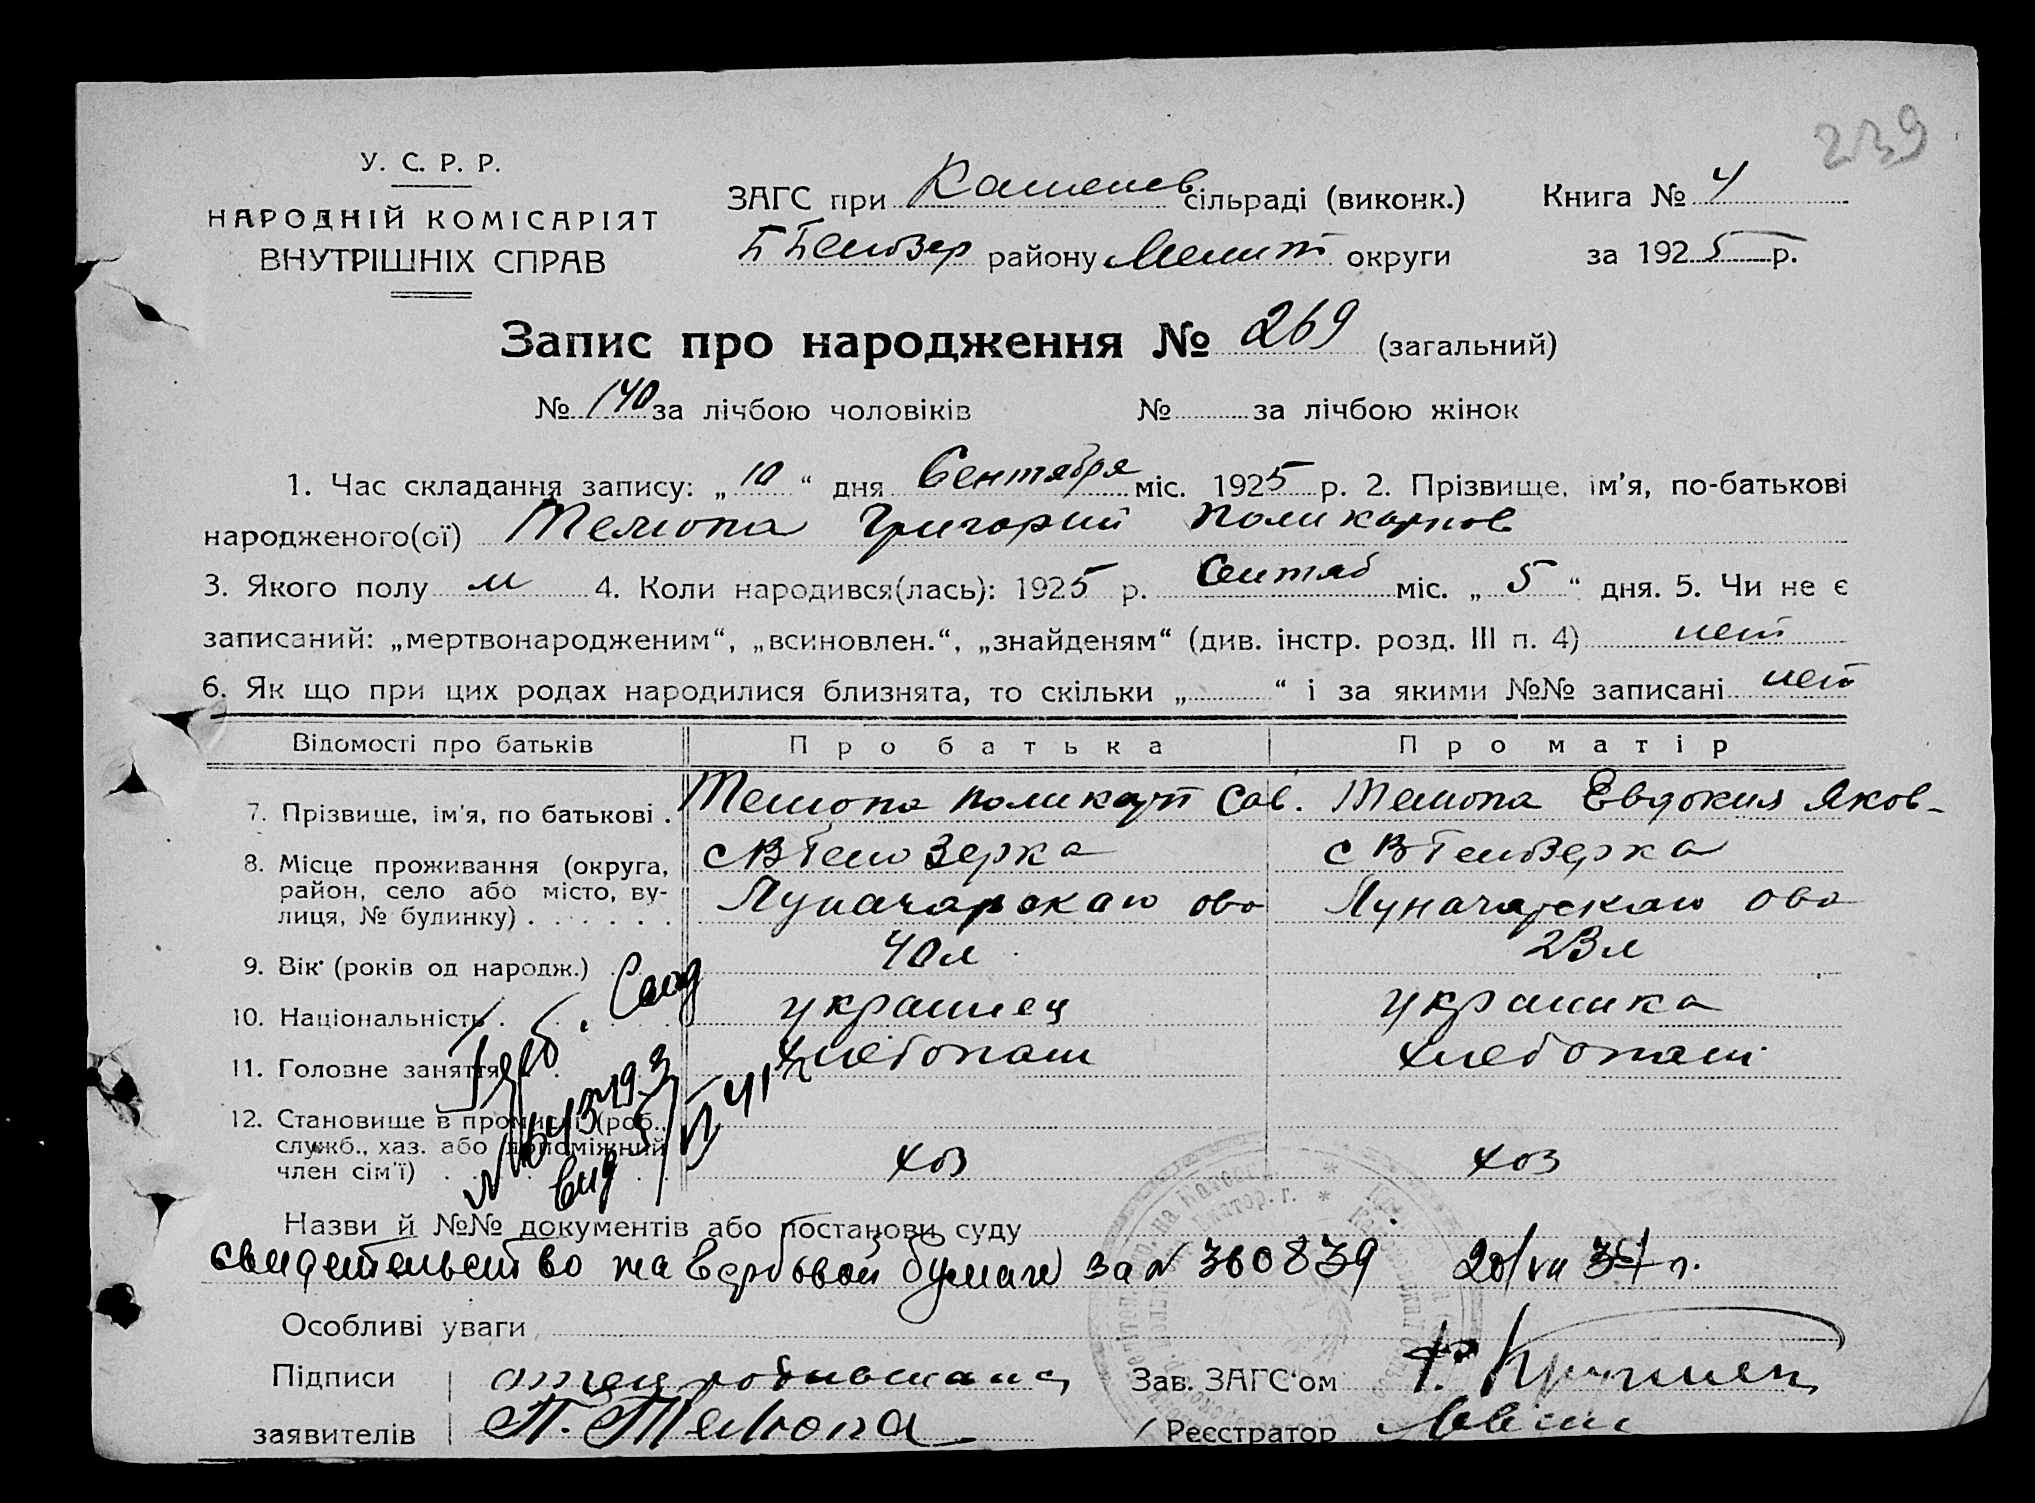 239
У. С. Р. Р.
НАРОДНІЙ КОМІСАРІЯТ
ВНУТРІШНІХ СПРАВ
ЗАГС при Каменев сільраді (виконк.)
Книга № 4
району Мелит округи
за 1925 р.
Запис про народження № 269 (загальний)
№ 140 за лічбою чоловіків № за лічбою жінок
1. Час складання запису: „10“ дня Сентября міс. 1925 р. 2. Прізвище, ім’я, по-батькові
народженого(ої) Телюпа Григорий Поликарпов
3. Якого полу м 4. Коли народився(лась): 1925 р. Сентяб міс. „5“ дня. 5. Чи не є
записаний: „мертвонародженим“, „всиновлен.“, „знайденям“ (див. інстр. розд. III п. 4) нет
6. Як що при цих родах народилися близнята, то скільки „ “ і за якими №№ записані нет
Відомості про батьків Про батька Про матір
7. Прізвище, ім’я, по батькові . Телюпа Поликарп Сав. Телюпа Евдокия Яков-
8. Місце проживання (округа, район, село або місто, вулиця, № будинку)
Луначарскаго ова Луначарскаго ова
9. Вік (років од народж.) 40 л 23 л
10. Національність украинец украинка
11. Головне заняття хлебопаш хлебопаш
12. Становище в промислі (роб., служб., хаз. або допоміжний член сім’ї) хоз хоз
Назви й №№ документів або постанови суду
свидетельство на гербовой бумаге за № 360839
Особливі уваги
Підписи заявителів
отец
П. Телюпа
Зав. ЗАГС‘ом
Реєстратор